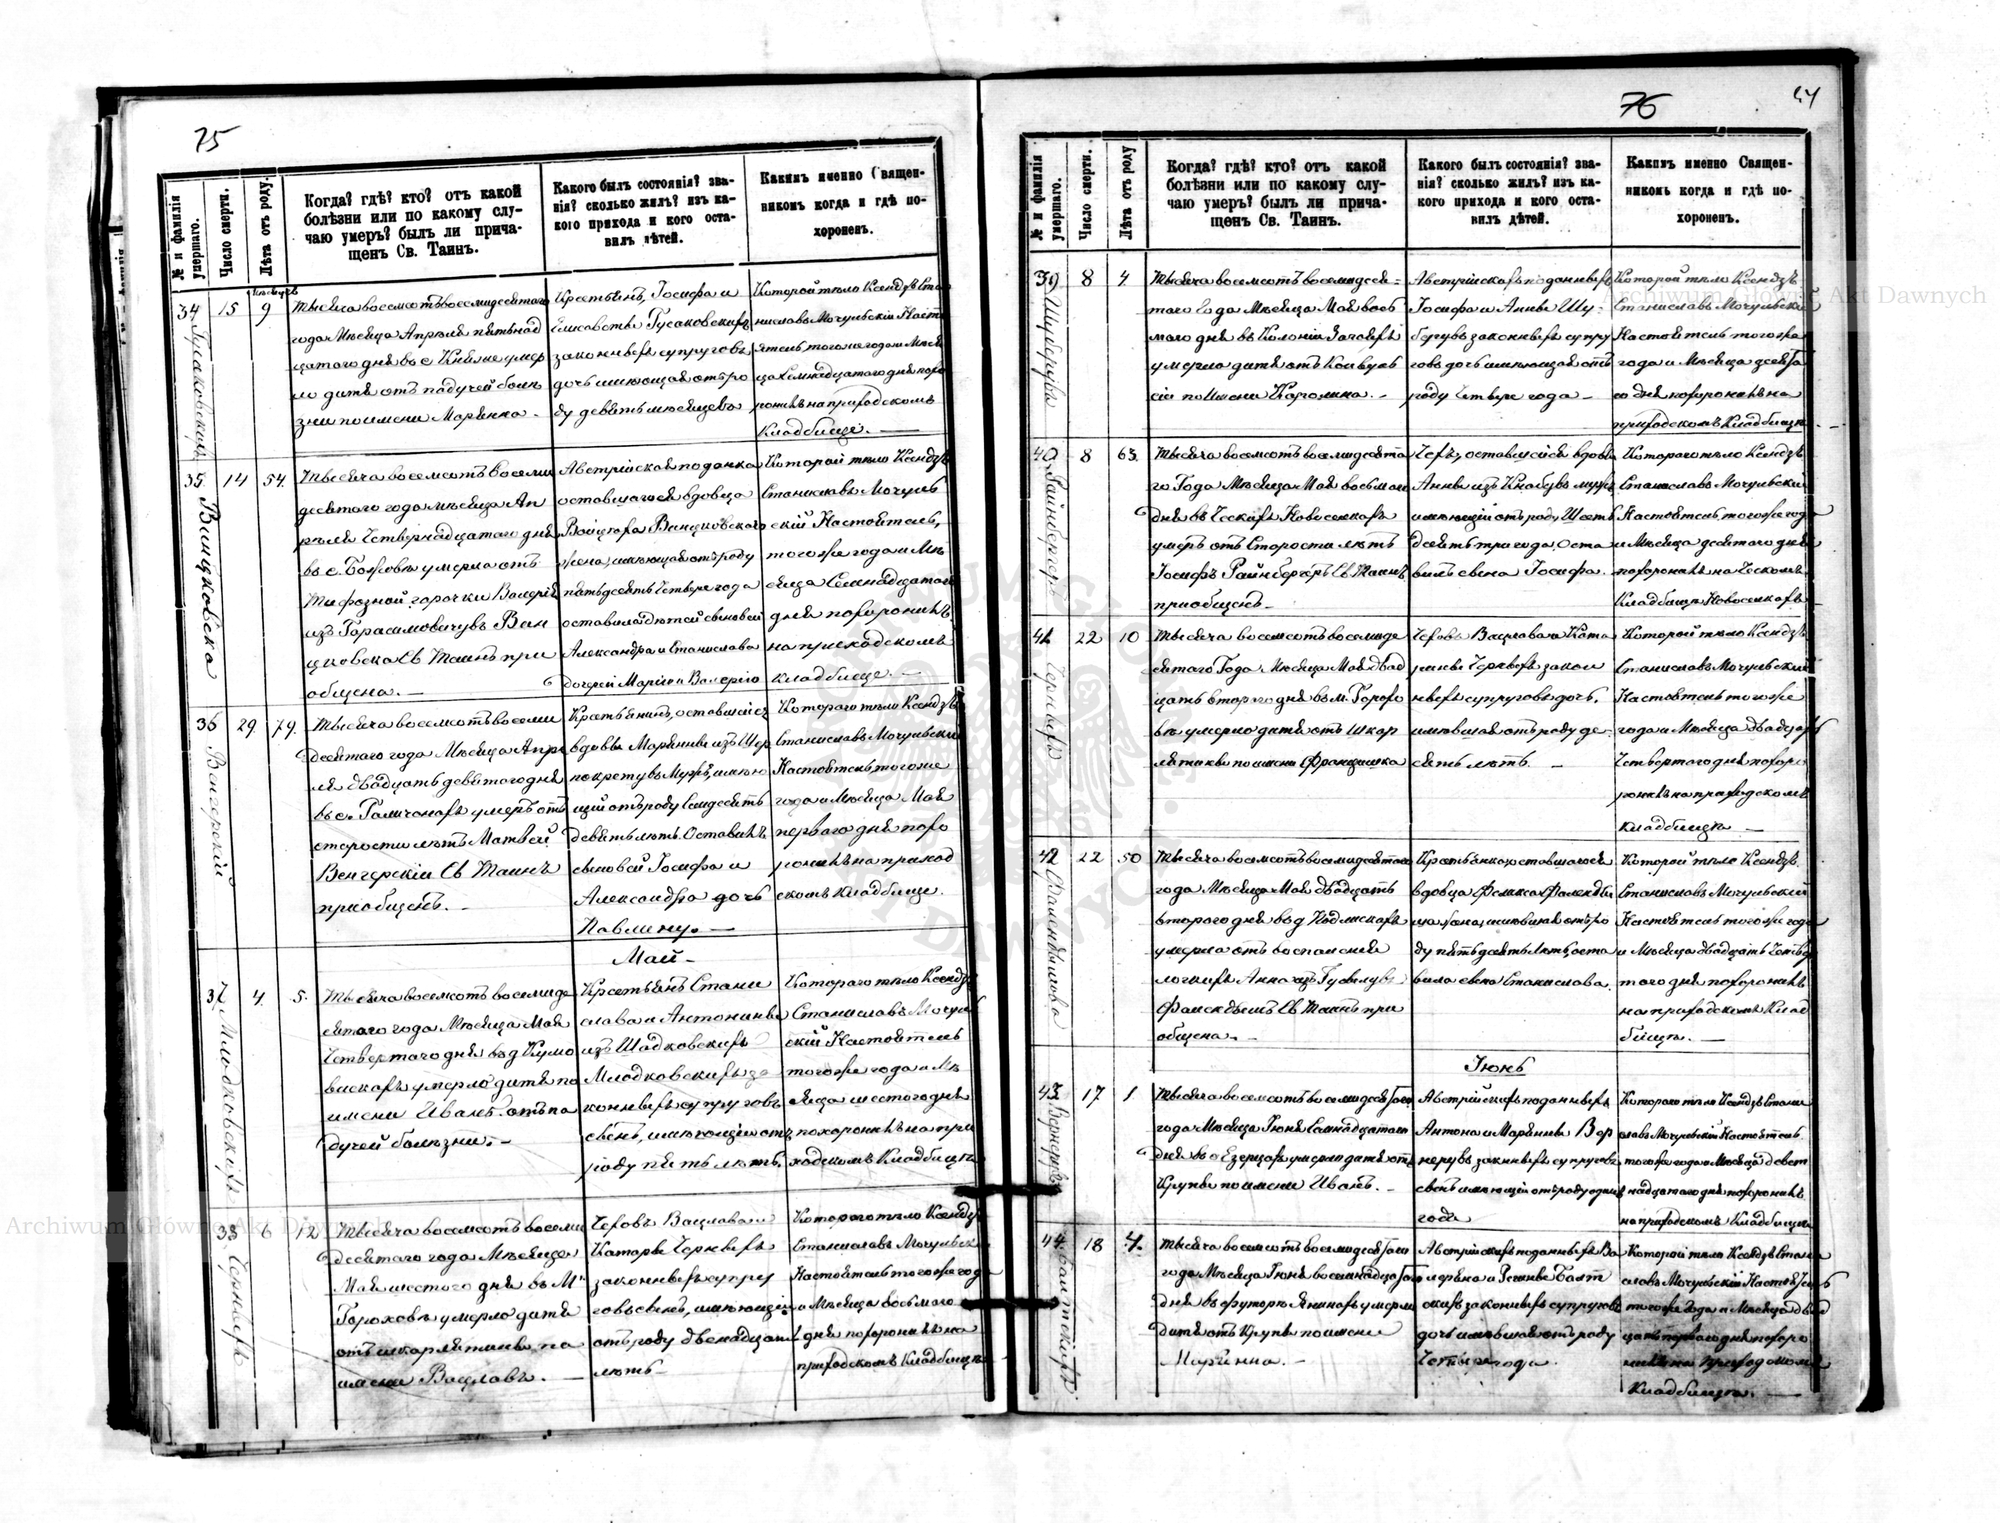 75
№ и фамилія умершаго.
Число смерти.
Лѣта отъ роду.
Когда? гдѣ? кто? отъ какой
болѣзни или по какому слу-
чаю умеръ? былъ ли прича-
щенъ Св. Таинъ.
Какого былъ состоянія? зва-
нія? сколько жилъ? изъ ка-
кого прихода и кого оста-
вилъ дѣтей.
Какимъ именно Священ-
никомъ когда и гдѣ по-
хороненъ.
34 15 9
Гусаковская
Тысяча восемсотъ восемидесятаго
года Мѣсяца Апрѣля пятьнад
цатого дня въ с. Княже умер
ло дитя отъ падучей болѣ
зни по имени Марянна.
Крестьянъ, Іосифа и
Елисаветы Гусаковскихъ
законныхъ супруговъ
дочь имѣющая отъ ро
ду девять мѣсяцевъ
Которой тѣло Ксендзъ Ста
ниславъ Мочульскій Насто
ятель того же года и Мѣся
ца Семнадцатого дня похо
ронилъ на приходскомъ
Кладбищѣ.
35 14 54.
Винцковска
Тысяча восемсотъ восеми
десятого года мѣсяца Ап
рѣля Четвернадцатого дня
умерла отъ
Тифозной горячки Валерія
изъ Герасимовичувъ Вин
цковска Св Таинъ при
общена.
Австрійская поданка
оставшагося вдовца
Войцеха Винцковского
жена, имѣющая отъ роду
пятьдесятъ Четыре года
оставила дѣтей сыновей
Александра и Станислава
дочерей Марію и Валерію
Которой тѣло Ксендзъ
Станиславъ Мочуль
скій Настоятель,
того же года и Мѣ
сяца Семнадцатого
дня похоронилъ
на приходскомъ
кладбищѣ.
36 29 79.
Венгерскій
Тысяча восемсотъ восеми
десятого года Мѣсяца Апрѣ
ля двадцать девятого дня
въ с. Галичанахъ умеръ отъ
старости лѣтъ Матвей
Венгерскій Св Таинъ
приобщенъ.
Крестьянинъ, оставшейся
вдовы Марянны изъ
Мужъ, имѣю
щій отъ роду Семдесятъ
девять лѣтъ. Оставилъ
сыновей Іосифа и
Александра дочь
Павлину.
Которого тѣло Ксендзъ
Станиславъ Мочульскій
Настоятель того же
года и Мѣсяца Мая
первого дня похо
ронилъ на приход
скомъ кладбище.
Май
37. 4. 5.
Млодковскихъ
Тысяча восемсотъ восемиде
сятого года Мѣсяца Мая
Четвертого дня въ д Кумо
вискахъ умерло дитя по
имени Иванъ отъ па
дучей болѣзни.
Крестьянъ Стани
слава и Антонины
изъ Шадковскихъ
Млодковскихъ за
конныхъ супруговъ
сынъ, имѣющій отъ
роду пять лѣтъ.
Которого тѣло Ксендзъ
Станиславъ Мочуль
скій Настоятель
того же года и Мѣ
сяца шестого дня
похоронилъ на при
ходскомъ Кладбищѣ
38 6 12
Черныхъ
Тысяча восемсотъ восеми
десятого года Мѣсяца
Мая шестого дня въ М.
Гороховъ умерло дитя
отъ шкарлятины по
имени Вацлавъ.
Чеховъ Вацлава и
Катары Черныхъ
законныхъ супру
говъ сынъ, имѣющій
отъ роду двенадцать
лѣтъ
Которого тѣло Ксендзъ
Станиславъ Мочульск
Настоятель того же года
и Мѣсяца восьмого
дня похоронилъ на
приходскомъ Кладбищѣ
76
№ и фамилія умершаго.
Число смерти.
Лѣта отъ роду
Когда? гдѣ? кто? отъ какой
болѣзни или по какому слу-
чаю умеръ? былъ ли прича-
щенъ Св. Таинъ.
Какого былъ состоянія? зва-
нія? сколько жилъ? изъ ка-
кого прихода и кого оста-
вилъ дѣтей.
Какимъ именно Священ-
никомъ когда и гдѣ по-
хороненъ.
39 8 4
Тысяча восемсотъ восмидеся-
того Года Мѣсяца Мая вось
мого дня въ Колоніи
умерло дитя отъ Конвуль
сій по имени Каролина.
Австрійскихъ поданныхъ
Іосифа и Анны Шу-
законныхъ супру
говъ дочь имѣющая отъ
роду Четыре года
Которой тѣло Ксендзъ
Станиславъ Мочульскі
Настоятель того же
года и Мѣсяца десята
го дня похоронилъ на
приходскомъ Кладбищѣ
40 8 63.
Райнбергеръ
Тысяча восемсотъ восмидесята
го Года Мѣсяца Мая восьмого
дня въ Ческихъ Новоселкахъ
умеръ отъ Старости лѣтъ
Іосифъ Райнбергеръ Св Таинъ
приобщенъ
Чехъ, оставшейся вдовы
Анны изъ мужъ
имѣющій отъ роду Шесть
десятъ три года, Оста
вилъ сына Іосифа.
Которого тѣло Ксендзъ
Станиславъ Мочульскій
Настоятель того же года
и Мѣсяца десятого дня
похоронилъ на Ческомъ
Кладбищѣ Новоселкахъ
41 22 10
Черныхъ
Тысяча восемсотъ восемиде
сятого Года Мѣсяца Мая двад
цать второго дня въ м. Горохо
вѣ умерло дитя отъ Шкар
лятины по имени Францишка
Чеховъ Вацлава и Ката
рины Черныхъ закон
ныхъ супруговъ дочь,
имѣвшая отъ роду де
сять лѣтъ.
Которой тѣло Ксендзъ
Станиславъ Мочульскій
Настоятель того же
года и Мѣсяца двадцать
Четвертого дня похоро
ронилъ на приходскомъ
кладбищѣ
42 22 50
Тысяча восемсотъ восмидесятого
года Мѣсяца Мая двадцать
второго дня въ д Подлискахъ
умерла отъ воспаленія
легкихъ Анна изъ
Св Таинъ при
общена.
Крестьянка оставшагося
вдовца Феликса
жена, имѣвшая отъ ро
ду пятьдесятъ лѣтъ, оста
вила сына Станислава.
Которой тѣло Ксендзъ
Станиславъ Мочульскій
Настоятель того же года
и Мѣсяца двадцать Четвер
того дня похоронилъ
на приходскомъ Клад
бищѣ.
Іюнь
43. 17 1
Тысяча восемсотъ восемидесятого
года Мѣсяца Іюня Семнадцатого
дня въ с Езерцахъ умерло дитя отъ
Крупы по имени Иванъ.
Австрійскихъ поданныхъ
Антона и Марянны Вор
нерувъ законныхъ супруговъ
сынъ имѣющій отъ роду одинъ
годъ
Которого тѣло Ксендзъ Стани
славъ Мочульскій Настоятель
того же года и Мѣсяца девят
надцатого дня похоронилъ
на приходскомъ Кладбищѣ
44. 18 4.
Тысяча восемсотъ восемидесятого
года Мѣсяца Іюня восемнадцатого
дня въ футорѣ Янинахъ умерло
дитя отъ Крупы по имени
Марянна.
Австрійскихъ поданныхъ Ва
лерьяна и Регины
законныхъ супруговъ
дочь имѣвшая отъ роду
Четыре года.
Которой тѣло Ксендзъ Стани
славъ Мочульскій Настоятель
того же Года и Мѣсяца двад
цать первого дня похоро
нилъ на приходскомъ
Кладбищѣ.
Archiwum Główne Akt Dawnych
Archiwum Główne Akt Dawnych